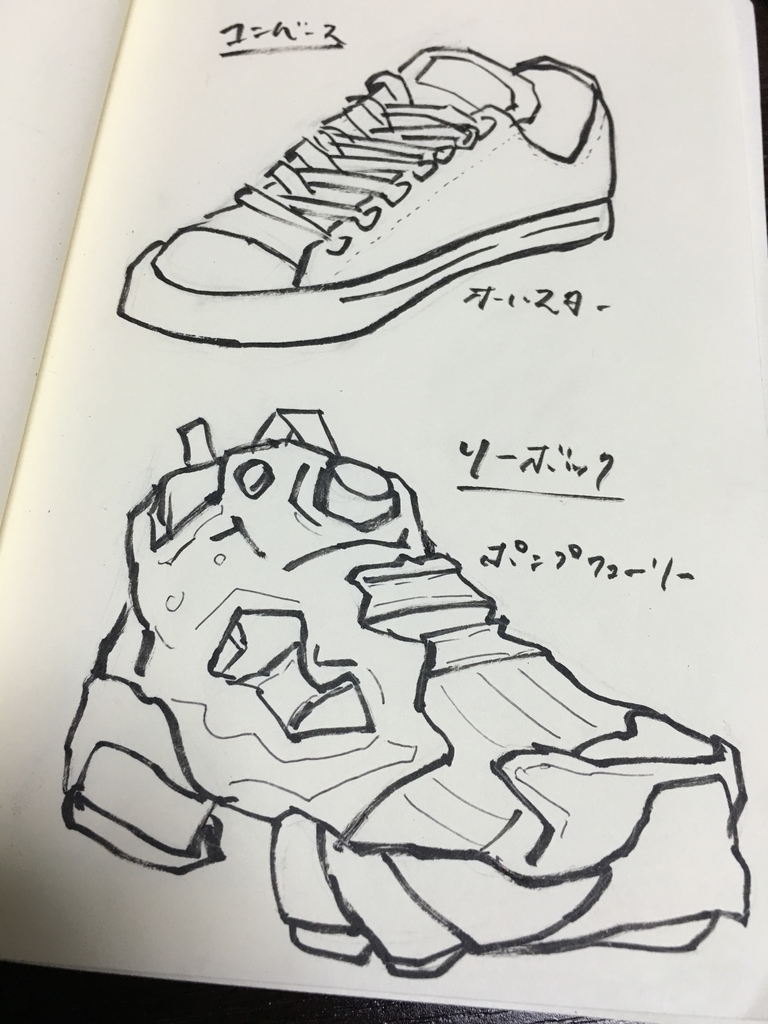 コンバース
オールスター
リーボック
ポンプフューリー